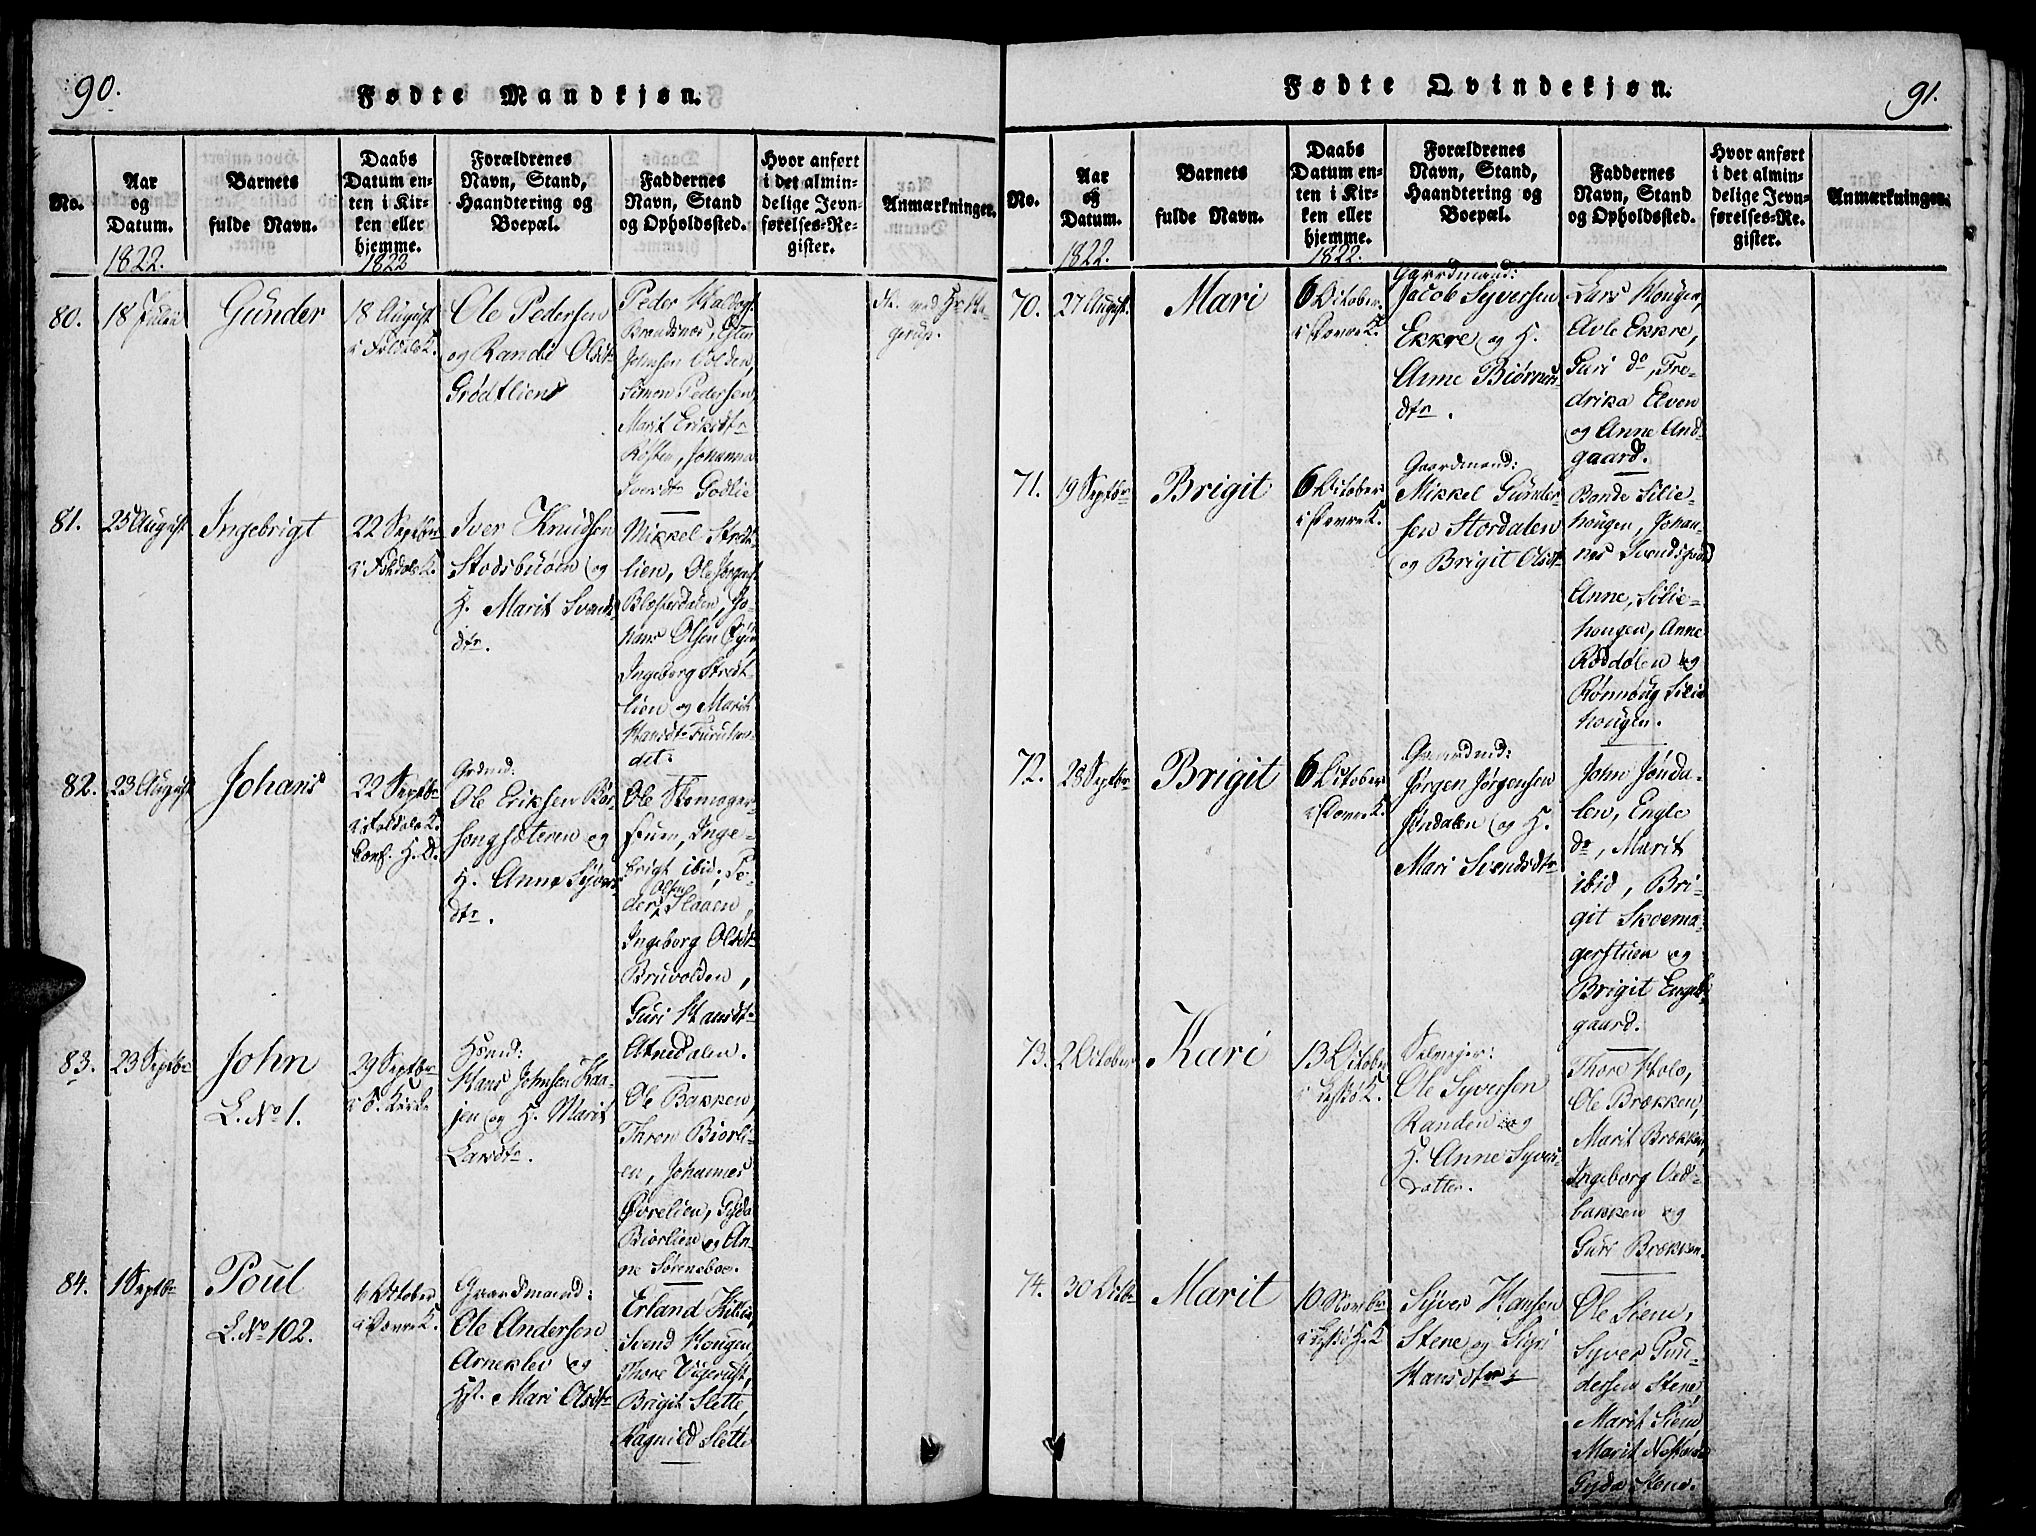 90.
Fødte Mandkjøn.
No.
Aar
og
Datum.
1822.
Barnets
fulde Navn.
Daabs
Datum en-
ten i Kir-
ken eller
hjemme.
1822
Forældrenes
Navn, Stand,
Haandtering og
Boepæl.
Faddernes
Navn, Stand
og Opholdssted.
Hvor anført
i det almin-
delige Jevn-
førelses-Re-
gister.
Anmærkninger.
80.
18 Julii
Gunder
18 August
i Foldals K.
Ole Pedersen
og Randi Olsdtr
Grødtlien
Peder
Brendmoe, Esten
Johnsen Volden,
Simon Pedersen
Marit Eriksdtr
Johanna
Iversdtr
81.
25 August
Ingebrigt
22 Septbr
i Foldals K.
Iver Knudsen
Stodsbuøien og
H. Marit Svends
dtr.
Mikkel Stret-
lien, Ole
Jo-
hans Olsen
Ingeborg Stret
lien og Marit
Hansdtr Furuhov-
det.
82.
23 August
Johans
22 Septbr
i Foldals K.
Conf. H. D.
Grdmd:
Ole Eriksen Bør-
songsæteren og
H. Anne Syvers
dtr.
Ole
Inge-
brigt ibid, Pe-
der Olsen Slaaen,
Ingeborg Olsdtr
Bruvolden,
Guri Hansdtr
Atnedalen.
83.
23 Septbr
John
L. No 1.
29 Septbr
i S. Kirke
Hsmd:
Hans Johnsen Kaa-
jen og H. Marit
Larsdtr.
Ole Bakken,
Thron Biorli-
en, Johannes
Øvrelien, Gyda
Biorlien og An-
ne Sørensboe.
84.
1 Septbr
Poul
L. No 102.
6 October
i Dovre K.
Gaardmand:
Ole Andersen
Arneklev og
Hst. Mari Olsdtr
Erland Killie,
Svend Hougen,
Thore Vigerust,
Brigit Slette,
Ragnild Slette
91.
Fødte Qvindekjøn.
No.
Aar
og
Datum.
1822.
Barnets
fulde Navn.
Daabs
Datum en-
ten i Kir-
ken eller
hjemme.
1822.
Forældrenes
Navn, Stand,
Haandtering og
Boepæl.
Faddernes
Navn, Stand
og Opholdssted.
Hvor anført
i det almin-
delige Jevn-
førelses-Re-
gister.
Anmærkninger.
70.
27 August
Mari
6 October
i Dovre K.
Gaardmand:
Jacob Syversen
Ekkre og H.
Anne Biørns
dtr.
Lars Hougen,
Avle Ekkre,
Guri do, Fre-
drika Elven
og Anne And-
gaard.
71.
19 Septbr
Brigit
6 October
i Dovre K.
Gaardmand:
Mikkel Gunder-
sen Stordalen
og Brigit Olsdtr
Bonde Lilie-
hougen, Johan-
nes
Anne, Lilie-
hougen, Anne
og
Rønnoug Lilie
hougen.
72.
28 Septbr
Brigit
6 October
i Dovre K.
Gaardmd:
Jørgen Jørgensen
Jøndalen og H.
Mari Svendsdtr
John Jønda-
len, Engle
do, Marit
ibid, Bri-
git Skoema-
gerstuen og
Brigit Engels
gaard.
73.
2 October
Kari
13 October
i Lessø K.
Selvejer:
Ole Syversen
Randen og
H. Anne Syvers-
datter.
Thore Holo,
Ole Brækken,
Marit Brækken,
Ingeborg Ved-
bakken og
Guri Brækken.
74.
30 Octbr
Marit
10 Novbr
i Lessø H. K
Syver Hansen
Stene og Sigri
Hansdtr
Ole Siem,
Syver Gun-
dersen Stene,
Marit Siem
Marit
Gyda Stene.